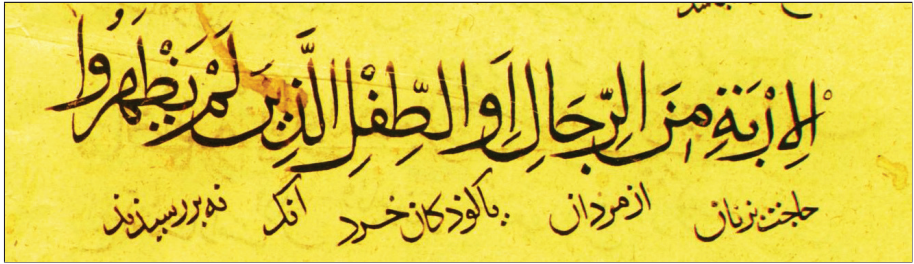 الْاِرْبَةِ مِنَ الرِّجَالِ اَوِ الطِّفْلِ الَّذِينَ لَمْ يَظْهَرُوا
حاجت بزنان از مردان یا کوذکان خرد آنک نه بررسیذند